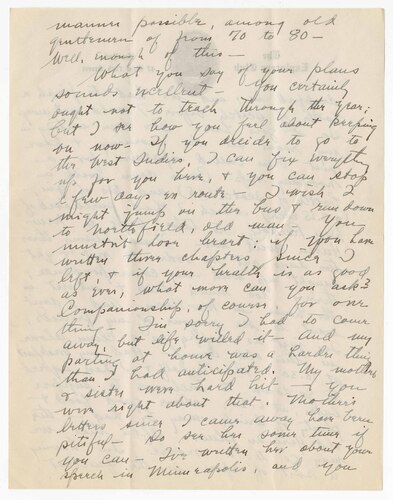 manner possible, among old
gentlemen of from 70 to 80 —
Well, enough of this —
What you say of your plans
sounds excellent — you certainly
ought not to teach through the year;
but I see how you feel about keeping
on now — If you decide to go to
the West Indies, I can fix everything
up for you here, & you can stop
a few days en route — I wish I
might jump on the bus & run down
to Northfield, old man — You
mustn't lose heart; if you have
written three chapters since I
left, & if your health is as good
as ever, what more can you ask?
Companionship, of course for one
thing — I'm sorry I had to come
away, but life willed it — And my
parting at home was a harder thing
than I had anticipated. My mother
& sister were hard hit — you
were right about that. Mother's
letters since I came away have been
pitiful — Do see her some time if
you can — I've written her about your
speech in Minneapolis, and you